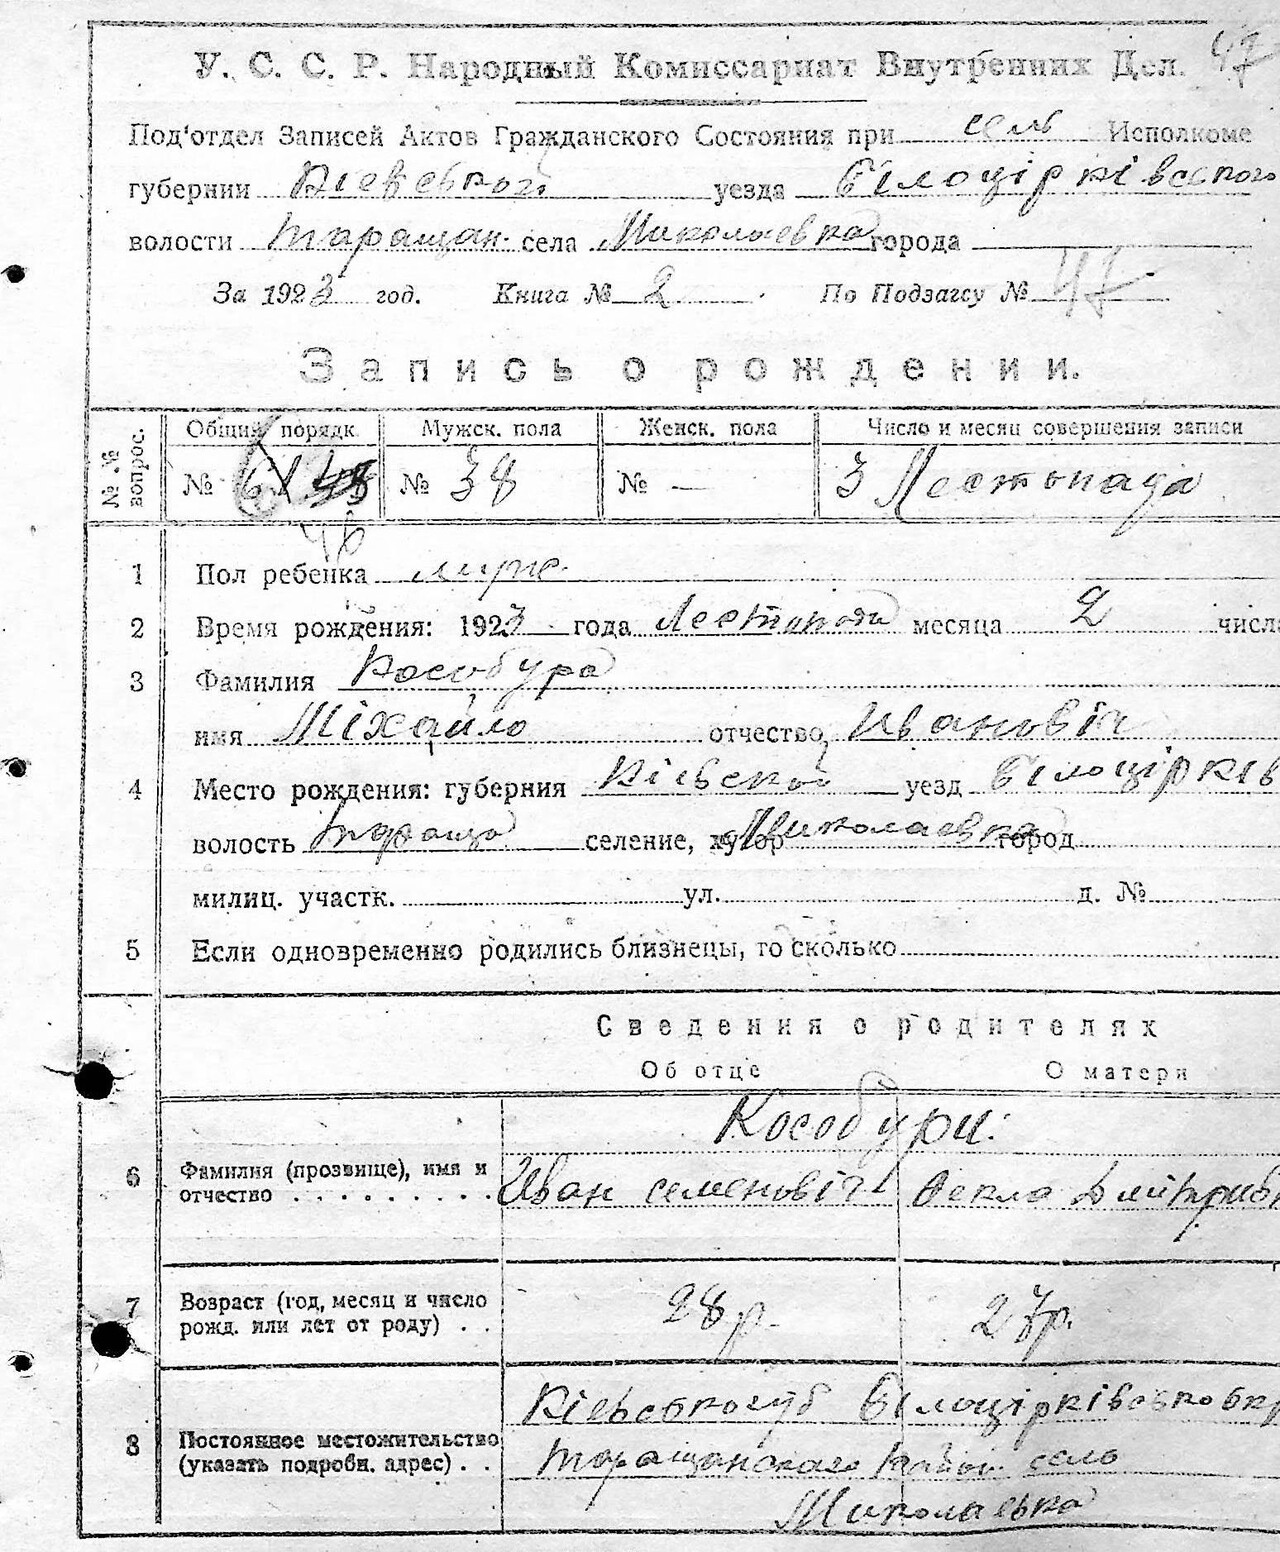 47
У. С. С. Р. Народный Комиссариат Внутренних Дел.
Под'отдел Записей Актов Гражданского Состояния при сель Исполкоме
губернии Киевської уезда Білоцірківського
волости Таращан. села Миколаевка города
За 1923 год. Книга № 2 По Подзагсу № 47
Запись о рождении.
№№ вопрос.
Общий порядк. Мужск. пола Женск. пола Число и месяц совершения записи
№ № 38 № — 3 Лестопада
46
1 Пол ребенка муже.
2 Время рождения: 1923 года Лестопада месяца 2 числа
3 Фамилия Кособура
имя Міхайло отчество Ивановіч
4 Место рождения: губерния Кіевской уезд Білоцірків
волость Тараща селение, хутор Миколаевка город
милиц. участк. ул. д. №
5 Если одновременно родились близнецы, то сколько
Сведения о родителях
Об отце О матери
Кособури:
6 Фамилия (прозвище), имя и
отчество . . . . . . . . . Иван семеновіч Фекла Дмитрив
7 Возраст (год, месяц и число
рожд. или лет от роду) . . 28 р. 27 р.
Білоцірківсько
8 Постоянное местожительство
(указать подробн. адрес) . . Таращанского село
Миколаевка